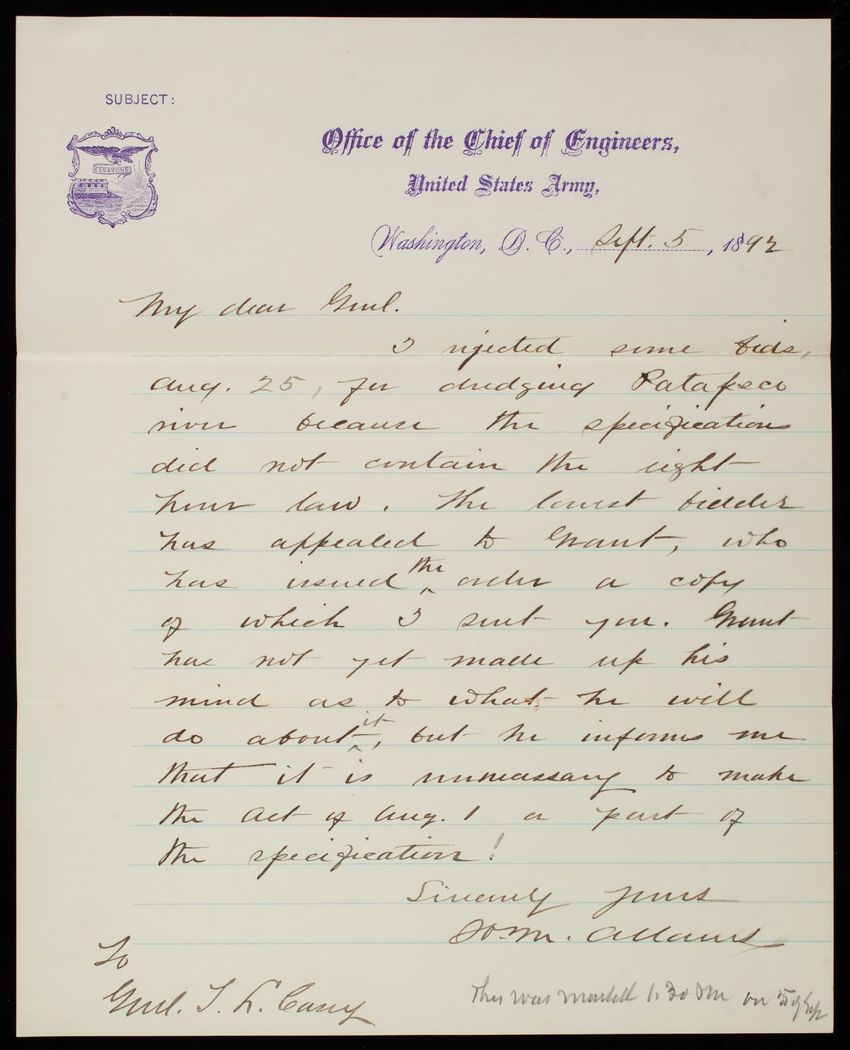 SUBJECT:
ESSAYONS
Office of the Chief of Engineers,
United States Army,
Washington, D. C., Sept. 5, 1892
My dear Genl.
I rejected some bids,
Aug. 25, for dredging Patapsco
river because the specifications
did not contain the eight
hour law. The lowest bidder
has appealed to Grant, who
has issued the order a copy
of which I sent you. Grant
has not yet made up his
mind as to what he will
do about it, but he informs me
that it is unnecessary to make
the Act of Aug. 1 a part of
the specification!
Sincerely yours
H. M. Adams
To
Genl. T. L. Casey
This was mailed 1:30 PM on 5 of Sep